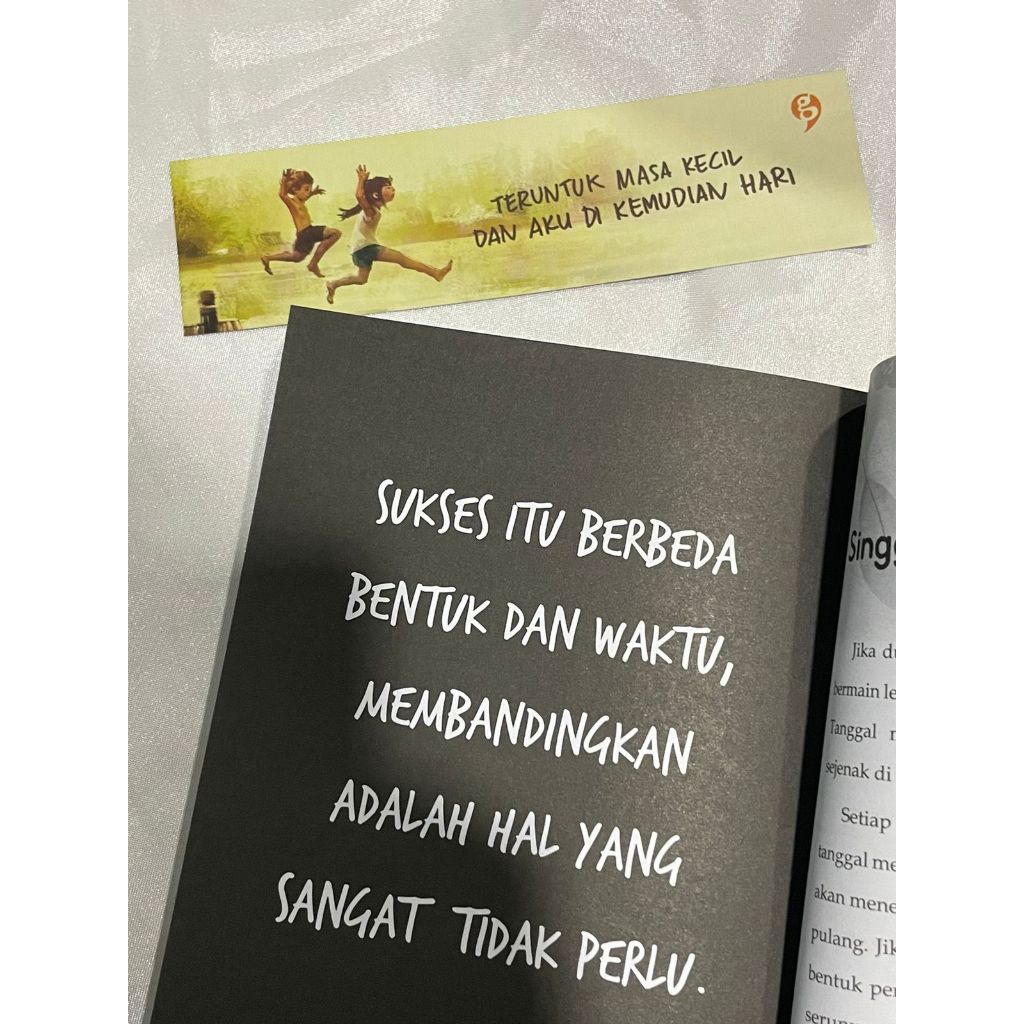 TERUNTUK MASA KECIL
DAN AKU DI KEMUDIAN HARI
SUKSES ITU BERBEDA
BENTUK DAN WAKTU,
MEMBANDINGKAN
ADALAH HAL YANG
SANGAT TIDAK PERLU.
Jika
bermain
Tanggal
sejenak di
Setiap
tanggal
akan
pulang.
bentuk